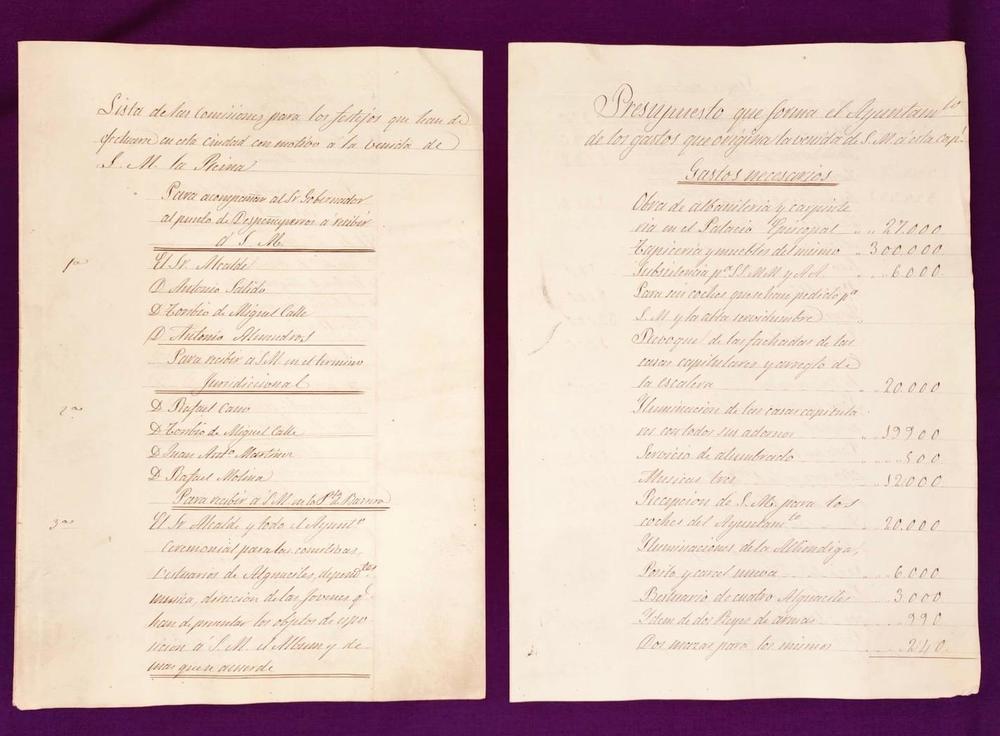 Lista de las comisiones para los festejos que han de
efectuarse en esta ciudad con motivo á la venida de
S. M. la Reina
Para acompañar al Sr Gobernador
al punto de Despeñaperros á recibir
á S. M.
1ª
El Sr. Alcalde
D. Antonio Salido
D. Toribio de Miguel Calle
D. Antonio Almedros
Para recibir a S.M. en el termino
Jurisdiccional
2ª
D. Rafael Cano
D. Toribio de Miguel Calle
D. Juan Antº Martinez
D. Rafael Molina
Para recibir á S.M. en la Pta Barrera
3ª
El Sr Alcalde y todo el Ayuntº
Ceremonial para las comitivas
Vestuarios de Alguaciles, dependtes
musica, direccion de las Jovenes q.
han de presentar los objetos de espo
sicion á S. M. el Album y de
mas que se acuerde
Presupuesto que forma el Ayuntamto
de los gastos que origina la venida de S. M. á esta Capl
Gastos necesarios
Obra de albañileria y carpinte
ria en el Palacio Episcopal 27.000
Tapiceria y muebles del mismo 300000
Subsistencia pª SS. M.M. y A.A. 6.000
Para seis coches que se han pedido pª
S. M. y la alta servidumbre
Revoque de las fachadas de las
casas capitulares y arreglo de
la escalera 20.000
Iluminacion de las casas capitula
res con todos sus adornos 19900
Servicio de alumbrado 500
Musicas tres 12000
Recepcion de S. M. para los
coches del Ayuntamto 20.000
Iluminaciones de la Alhondiga,
Posito y carcel nueva 6.000
Vestuario de cuatro Alguaciles 3.000
Ydem de dos Reyes de armas 990
Dos mazas para los mismos 240